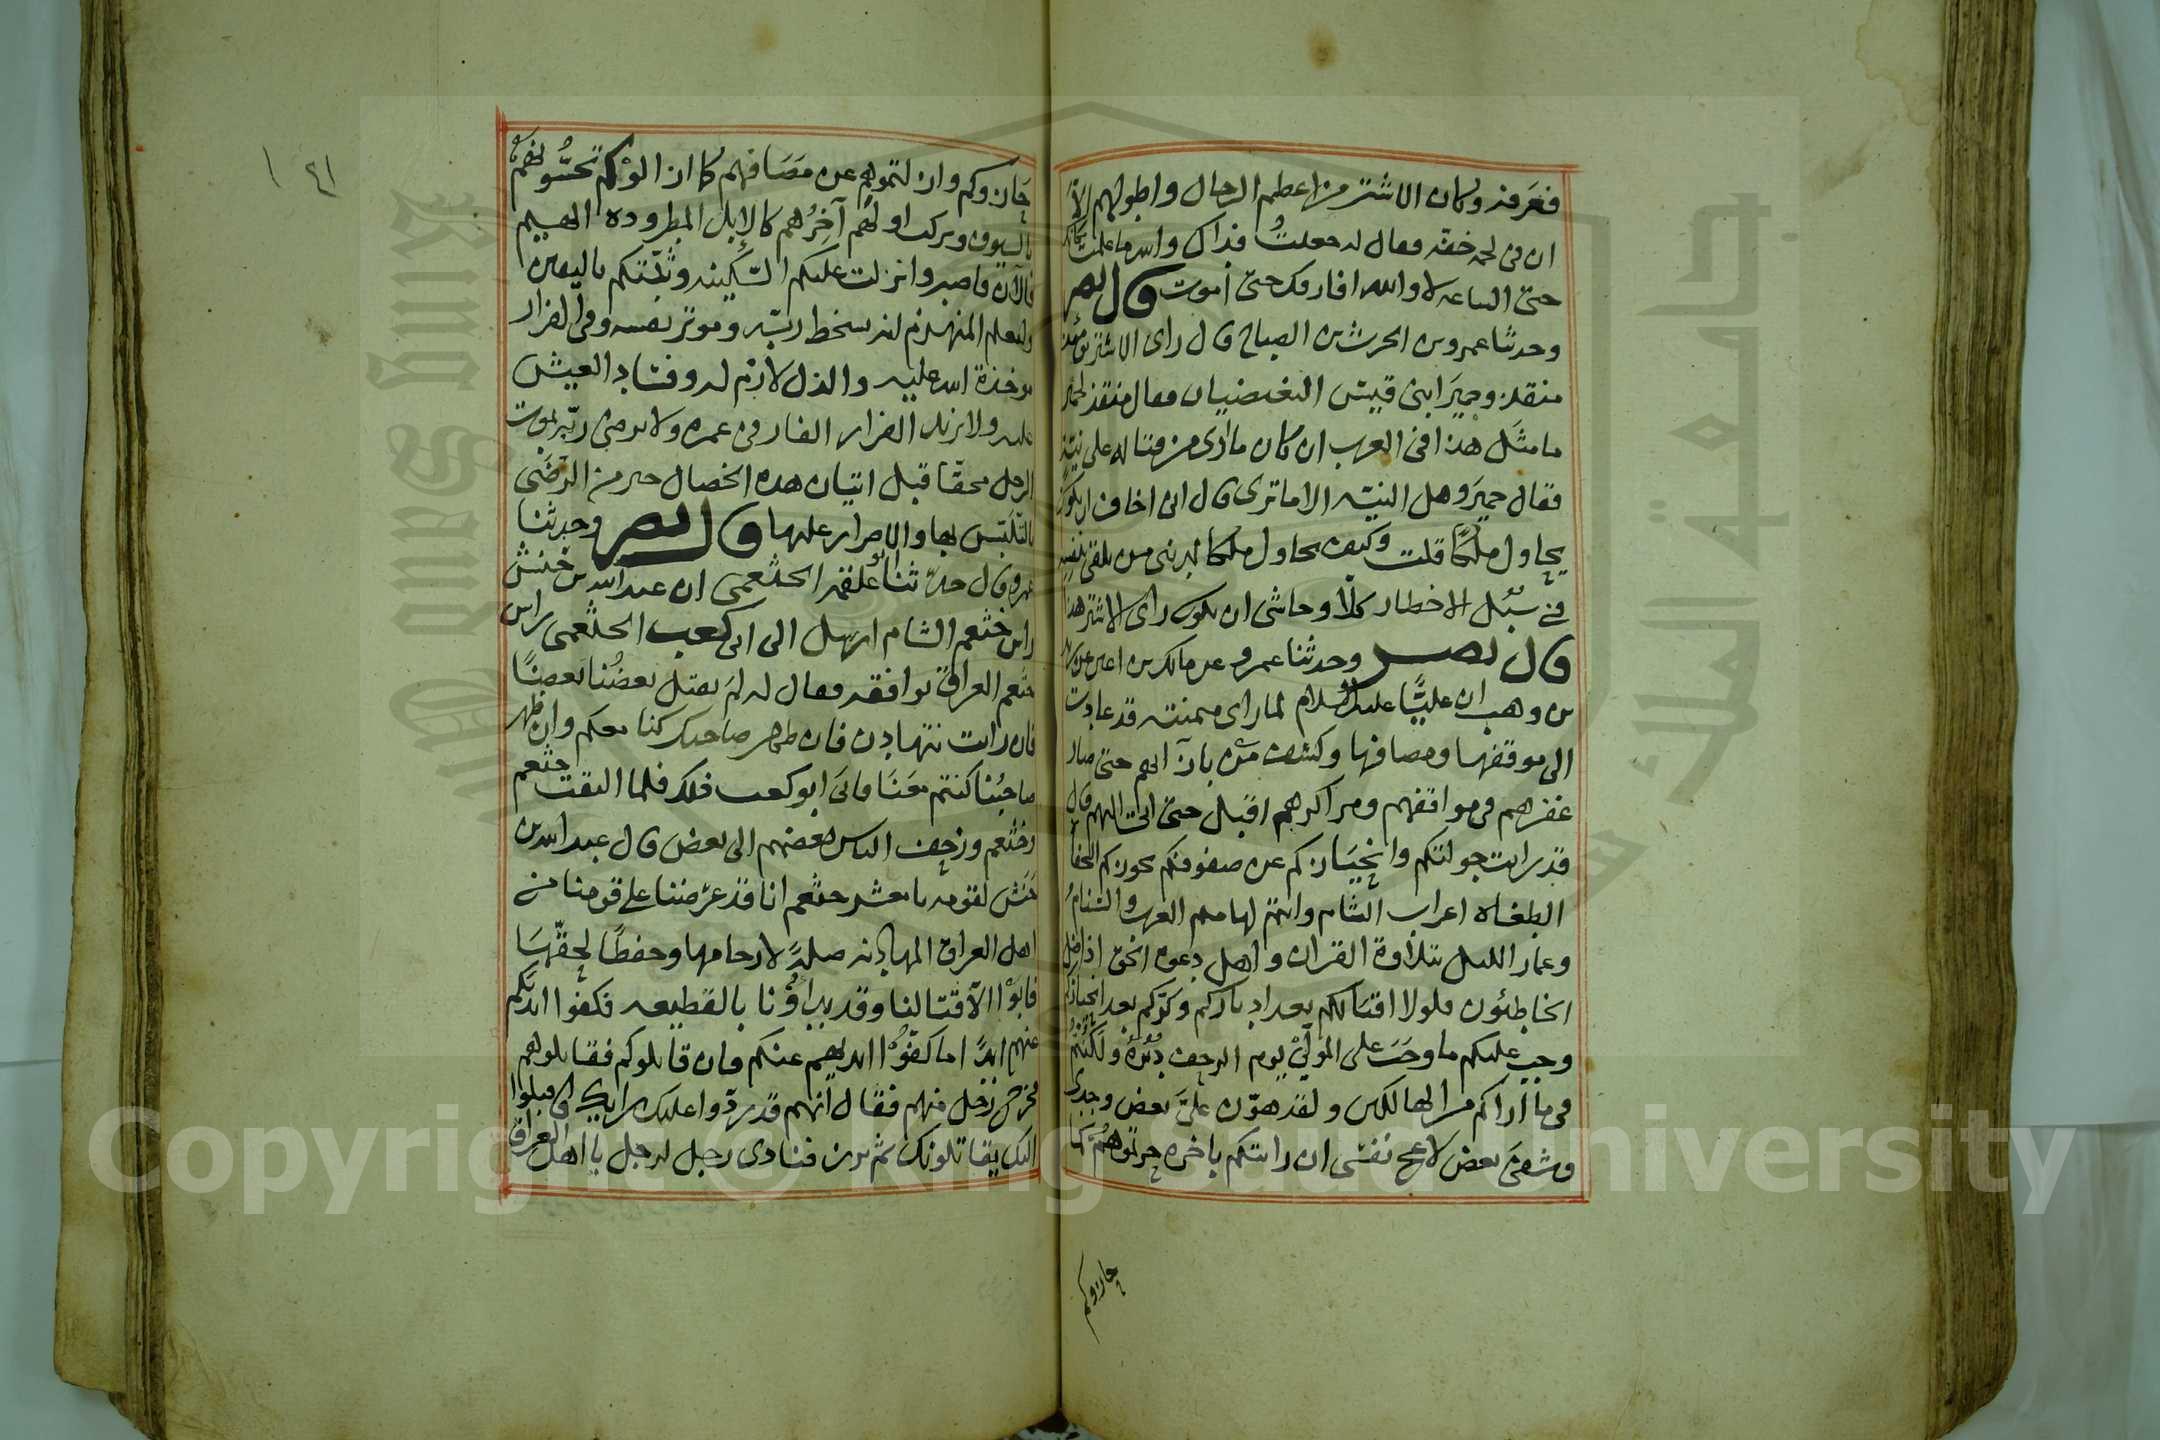 فعرفه وكان الاشتر من اعظم الرجال واطولهم الا
ان في لحمه خفه فقال له جعلت فداك والله ما علمت مكانك
حتى الساعه لا والله افارقك حتى اموت قال نصر
وحدثنا عمرو بن الحرث بن الصباح قال راى الاشتر يومئذ
منقذ وحمير ابنى قيس فقال منقذ لحمير
ما مثل هذا في العرب ان كان ما ارى من قتاله على نية
فقال حمير وهل النية الا ما ترى قال انى اخاف ان يكون
يحاول ملكا قلت وكيف يحاول ملكا
في سبل الاخطار كلا وحاشى ان يكون راى الاشتر هذا
قال نصر وحدثنا عمرو عن مالك بن اعين عن زيد
بن وهب ان عليا عليه السلام لما راى ميمنته قد عادت
الى موقفها ومصافها وكشفت من بازائهم حتى
في مواقفهم ومراكزهم اقبل حتى انتهى اليهم قال
قد رايت جولتكم وانحيازكم عن صفوفكم يحوزكم الجفاة
الطغاه اعراب الشام وانتم لهاميم العرب والسنام
وعمار الليل بتلاوة القران واهل دعوة الحق اذا ضل
الخاطئون فلولا اقبالكم بعد ادباركم وكركم بعد انحيازكم
وجب عليكم ما وجب على المولى يوم الزحف دبره ولكنتم
في ما اراكم من الهالكين ولقد هون على بعض وجدى
وشفى بعض لاعج نفسى ان رايتكم باخره حزتموهم كما
حازوكم
حازوكم وازلتموهم عن مصافهم كما ازالوكم تحسونهم
بالسيوف ويركب اولهم آخرهم كالإبل المطروده الهيم
فالآن فاصبروا نزلت عليكم السكينه وثبتكم باليقين
وليعلم المنهزم انه يسخط ربه وموتر نفسه وفي الفرار
موخذة الله عليه والذل لازم له وفساد العيش
عليه ولا يزيد الفرار الفار في عمره ولا يرضى ربه لموت
الرجل محقا قبل اتيان هذه الخصال خير من الرضى
بالتلبس بها والاصرار عليها قال نصر وحدثنا
عمرو قال حدثنا ابو علقمه الخثعمى ان عبد الله بن خنش
راس خثعم الشام ارسل الى ابى كعب الخثعمى راس
خثعم العراق نوافقه فقال له لم يقتل بعضنا بعضا
فان رايت نتهادن فان ظهر صاحبك كنا معكم وان ظهر
صاحبنا كنتم معنا فابى ابو كعب ذلك فلما التقت خثعم
وخثعم وزحف الناس بعضهم الى بعض قال عبد الله بن
خنش لقومه يا معشر خثعم انا قد عرضنا على قومنا من
اهل العراق المهادنه صلة لارحامها وحفظا لحقها
فابوا الا قتالنا وقد بداونا بالقطيعه فكفوا ايديكم
عنهم ابدا ما كفوا ايديهم عنكم فان قاتلوكم فقاتلوهم
فخرج رجل منهم فقال انهم قد ردوا عليك رايك واقبلوا
اليك يقاتلونك ثم برز فنادى رجل لرجل يا اهل العراق
١٤١
Copyright © King Saud University
King Saud University
جامعة الملك سعود